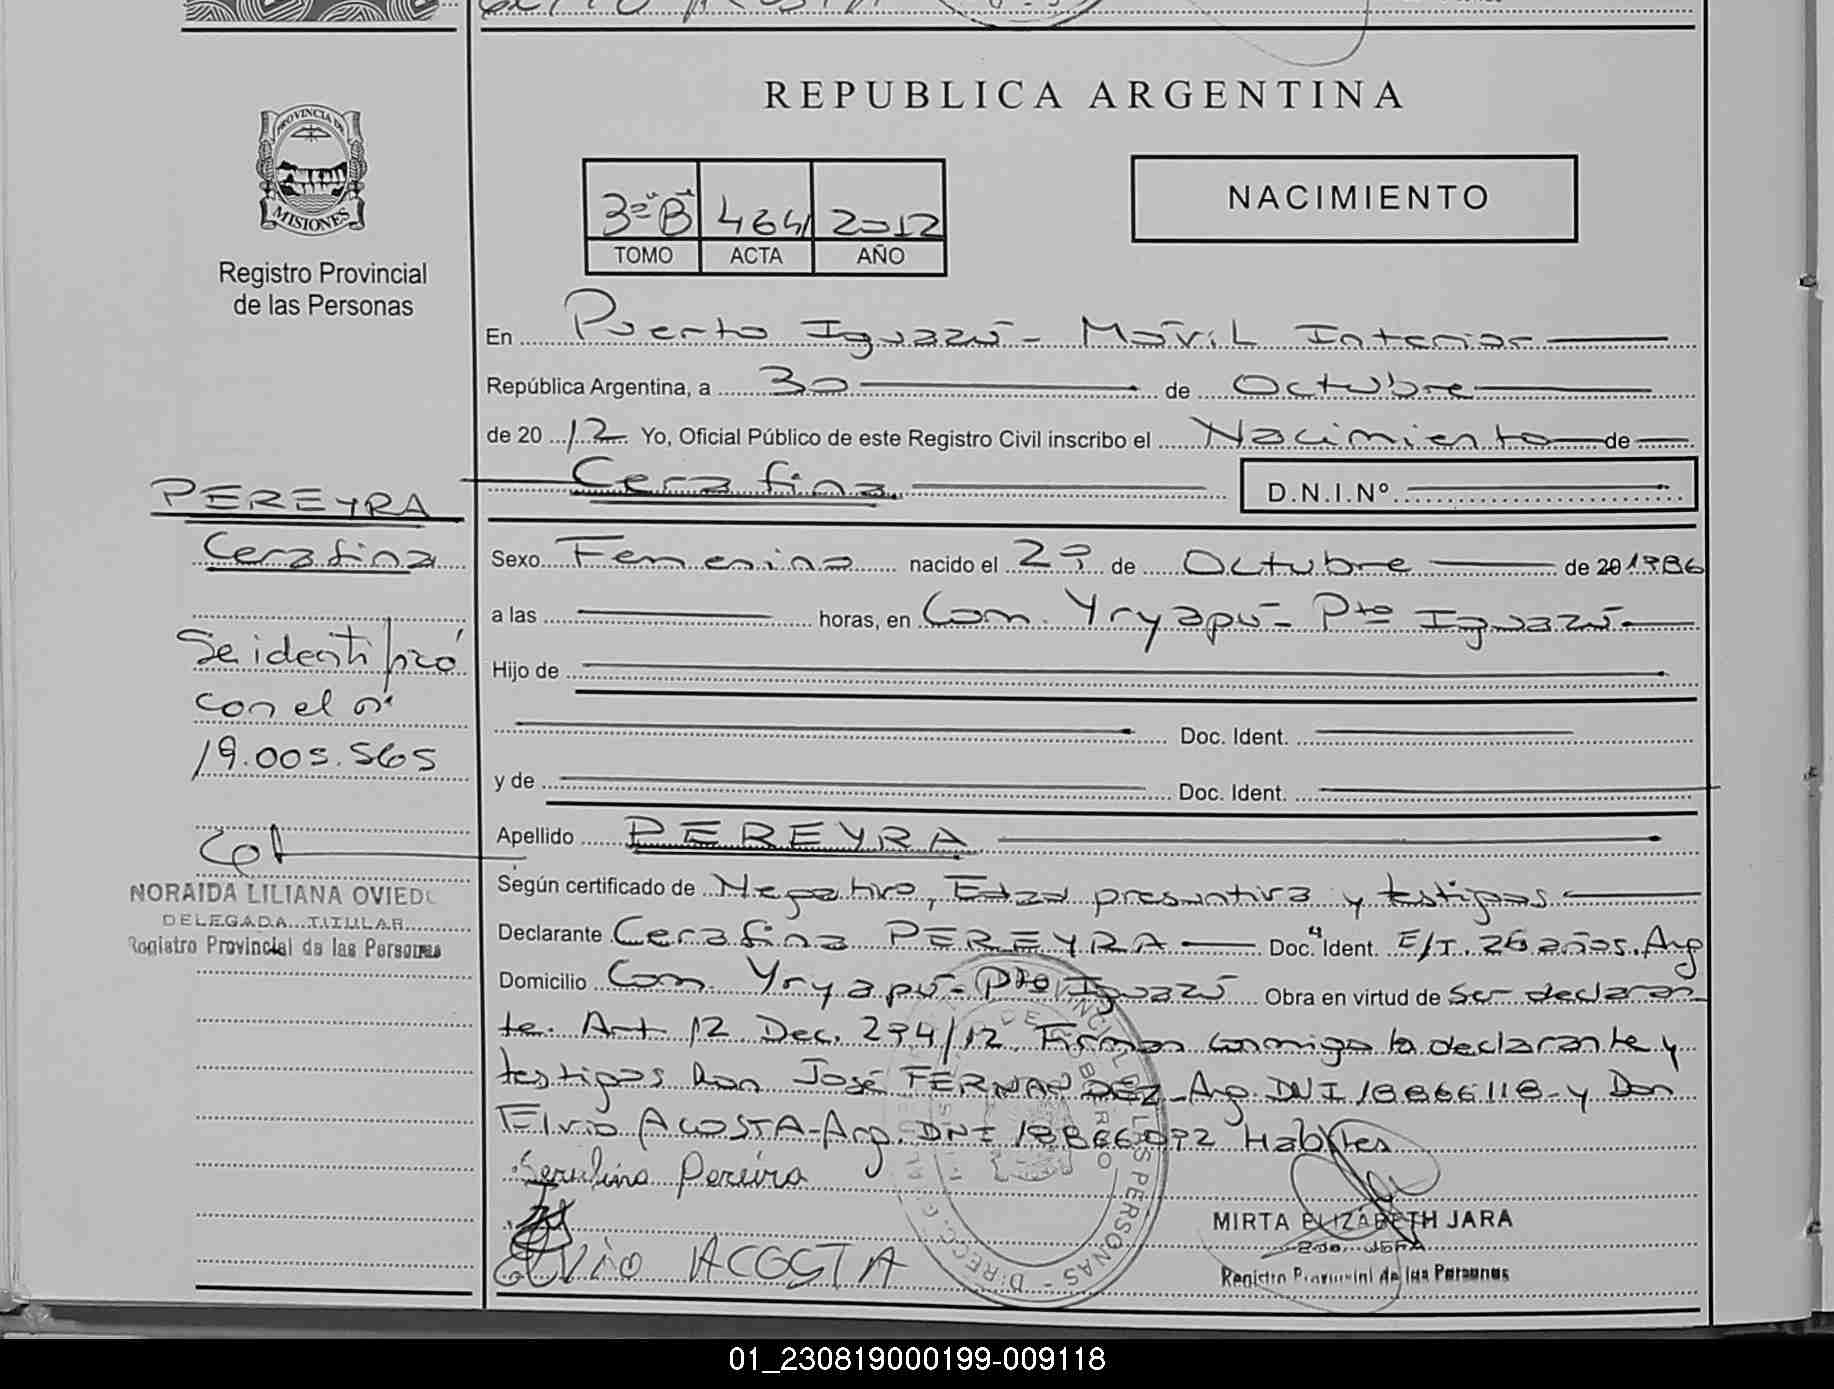 REPUBLICA ARGENTINA
PROVINCIA DE
MISIONES
Registro Provincial
de las Personas
3º "B" 464 2012
TOMO ACTA AÑO
NACIMIENTO
En Puerto Iguazú - Móvil Interior
República Argentina, a 30 de Octubre
de 2012 Yo, Oficial Público de este Registro Civil inscribo el Nacimiento de
Cerafina D.N.I.Nº
PEREYRA
Cerafina
Se identificó
con el nº
19.005.565
NORAIDA LILIANA OVIEDO
DELEGADA TITULAR
Registro Provincial de las Personas
Sexo Femenino nacido el 29 de Octubre de 20 1986
a las horas, en Com. Yryapú - Pto Iguazú
Hijo de
Doc. Ident.
y de Doc. Ident.
Apellido PEREYRA
Según certificado de Negativo, Edad presuntiva y testigos
Declarante Cerafina PEREYRA Doc. Ident. E/I. 26 años. Arg
Domicilio Com. Yryapú - Pto Iguazú Obra en virtud de Ser declaran
te. Art 12 Dec. 294/12. Firman conmigo la declarante y
testigos Don José FERNANDEZ - Arg. DNI 18866118 - y Don
Elvio ACOSTA - Arg. DNI 18866092 Habiles
Pereira
Elvio ACOSTA
MIRTA ELIZABETH JARA
2do. JEFA
Registro Provincial de las Personas
01_230819000199-009118